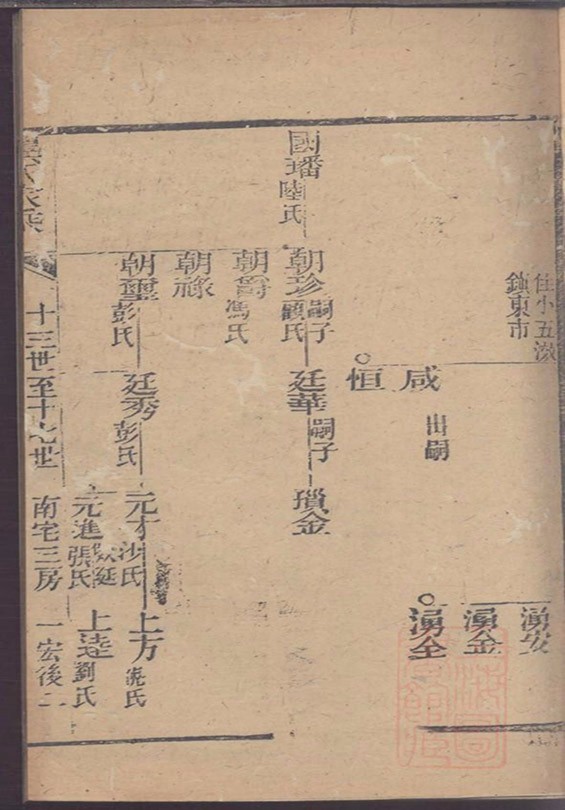 住小五濲
鎮東市
湧安
湧金
湧全
咸
出嗣
恒
國璠陸氏
朝珍嗣子
顧氏
廷華嗣子
瑣金
朝爵馮氏
朝祿
朝璽彭氏
廷秀彭氏
元才沙氏
上方
氏
元進
張氏
上達劉氏
氏家乘
十三世至十七世
南宅三房
一宏後二